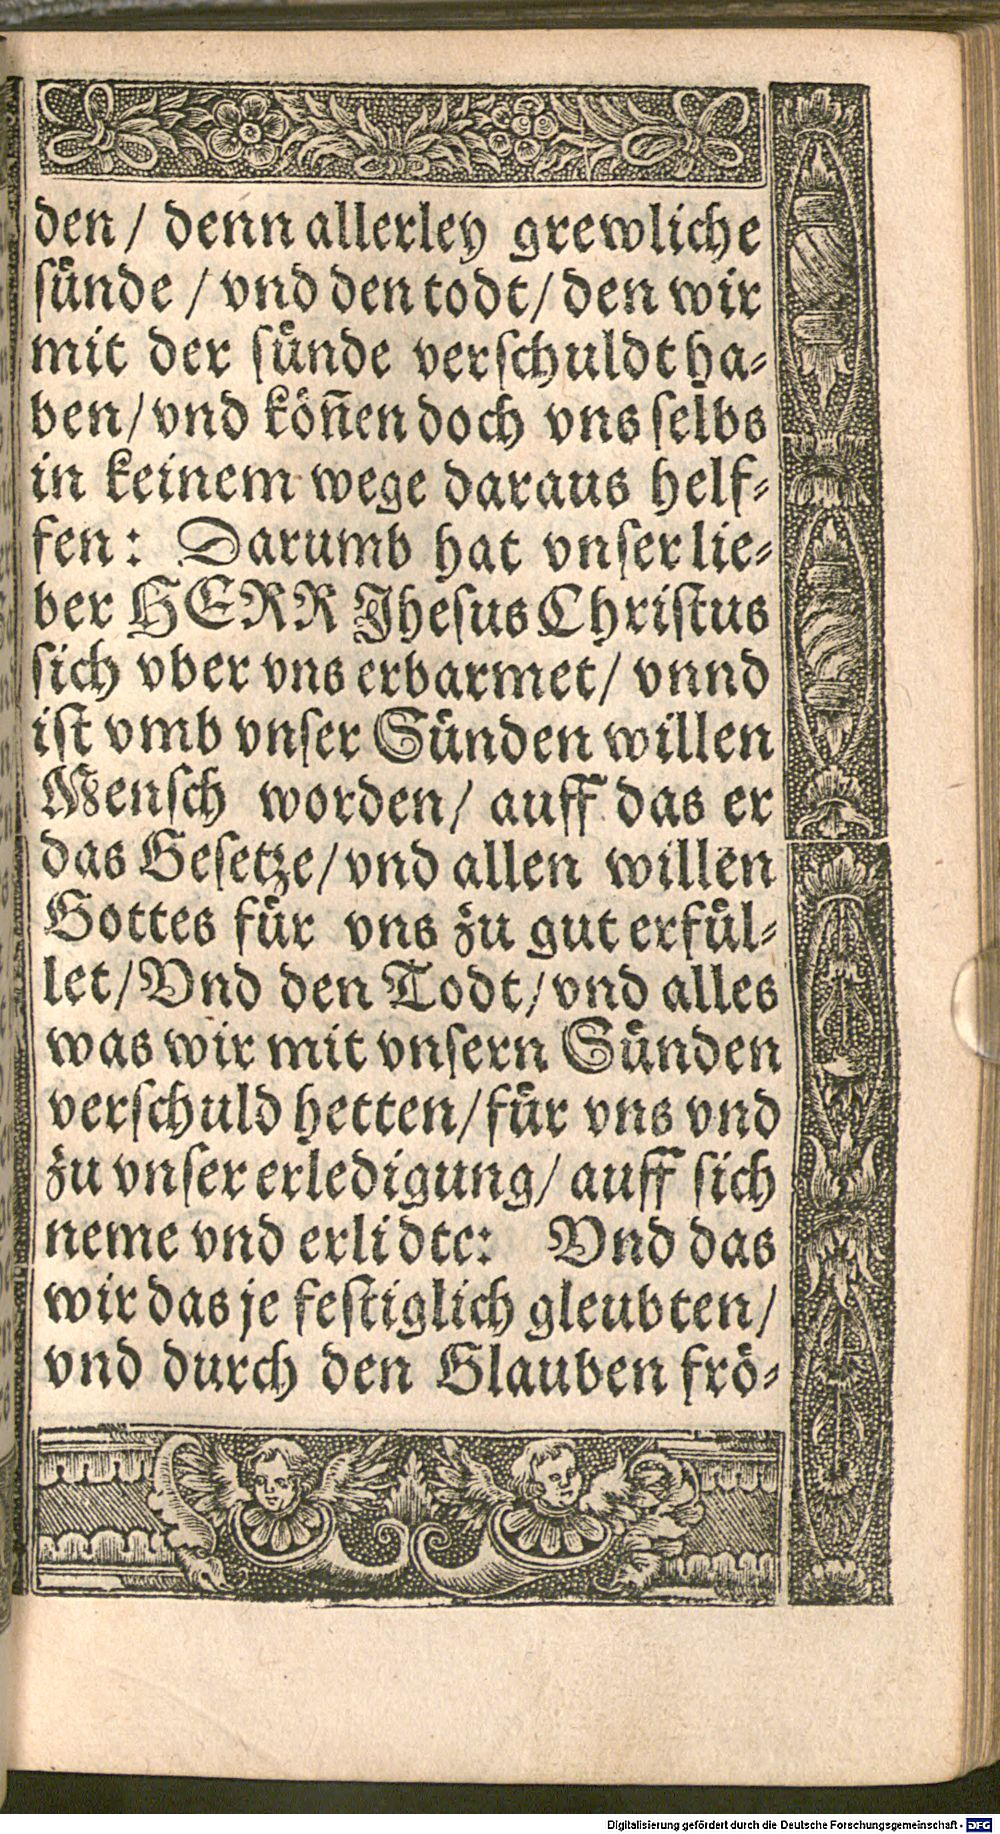 den / denn allerley grewliche
sünde / vnd den todt / den wir
mit der sünde verschuldt ha-
ben / vnd könn̄en doch vns selbs
in keinem wege daraus helf-
fen: Darumb hat vnser lie-
ber HERR Jhesus Christus
sich vber vns erbarmet / vnnd
ist vmb vnser Sünden willen
Mensch worden / auff das er
das Gesetze / vnd allen willen
Gottes für vns zu gut erfül-
let / Vnd den Todt / vnd alles
was wir mit vnsern Sünden
verschuld hetten / für vns vnd
zu vnser erledigung / auff sich
neme vnd erlidte: Vnd das
wir das je festiglich gleubten /
vnd durch den Glauben frö-
Digitalisierung gefördert durch die Deutsche Forschungsgemeinschaft - DFG